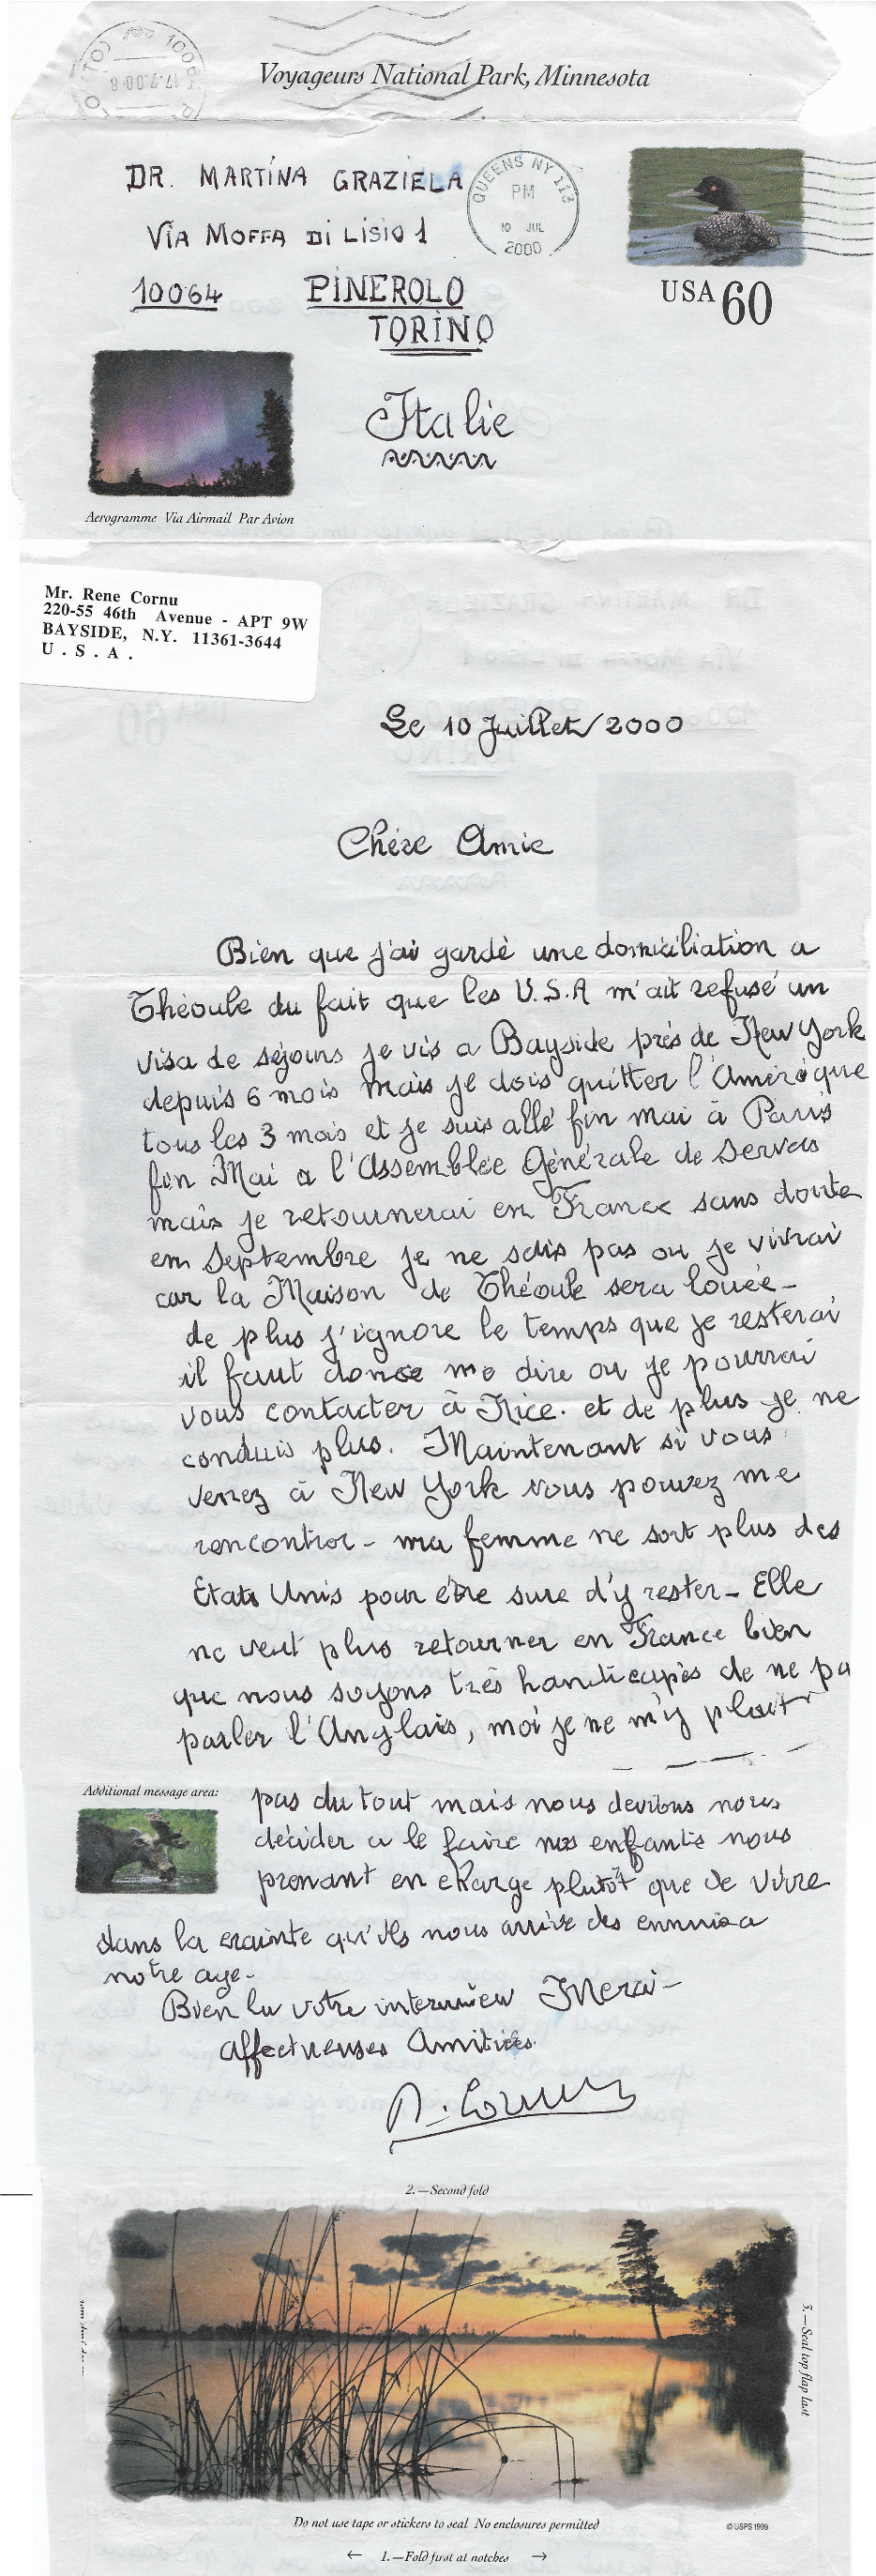 Voyageurs National Park, Minnesota
17.7.00-8
DR. MARTINA GRAZIELA
QUEENS NY 113
PM
10 JUL
2000
VIA MOFFA DI LISIO 1
10064 PINEROLO
TORINO
USA 60
Italie
Aerogramme Via Airmail Par Avion
Mr. Rene Cornu
220-55 46th Avenue - APT 9W
BAYSIDE, N.Y. 11361-3644
U.S.A.
Le 10 Juillet/2000
Chére Amie
Bien que j'ai gardè une domiciliation a
Théoule du fait que les U.S.A m'ait refusé un
visa de séjours je vis a Bayside prés de New York
depuis 6 mois mais je dois quitter l'Amèrique
tous les 3 mois et je suis allé fin mai à Paris
fin Mai a l'Assemblée Générale de Servas
mais je retournerai en France sans doute
en Septembre je ne sais pas ou je vivrai
car la Maison de Théoule sera louée-
de plus j'ignore le temps que je resterai
il faut donce me dire ou je pourrai
vous contacter à Nice. et de plus je ne
conduis plus. Maintenant si vous
venez à New York vous pouvez me
rencontrer- ma femme ne sort plus des
Etats Unis pour être sure d'y rester- Elle
ne veut plus retourner en France bien
que nous soyons trés handicapés de ne pa
parler l'Anglais, moi je ne m'y plait
Additional message area:
pas du tout mais nous devions nous
décider a le faire nos enfants nous
prenant en charge plutôt que de vivre
dans la crainte qu'ils nous arrive des ennuis a
notre age-
Bien lu votre interwiew Merci-
Affectueuses Amitiées.
R. Cornu
2.—Second fold
3.—Seal top flap last
Do not use tape or stickers to seal No enclosures permitted
© USPS 1999
← 1.—Fold first at notches →